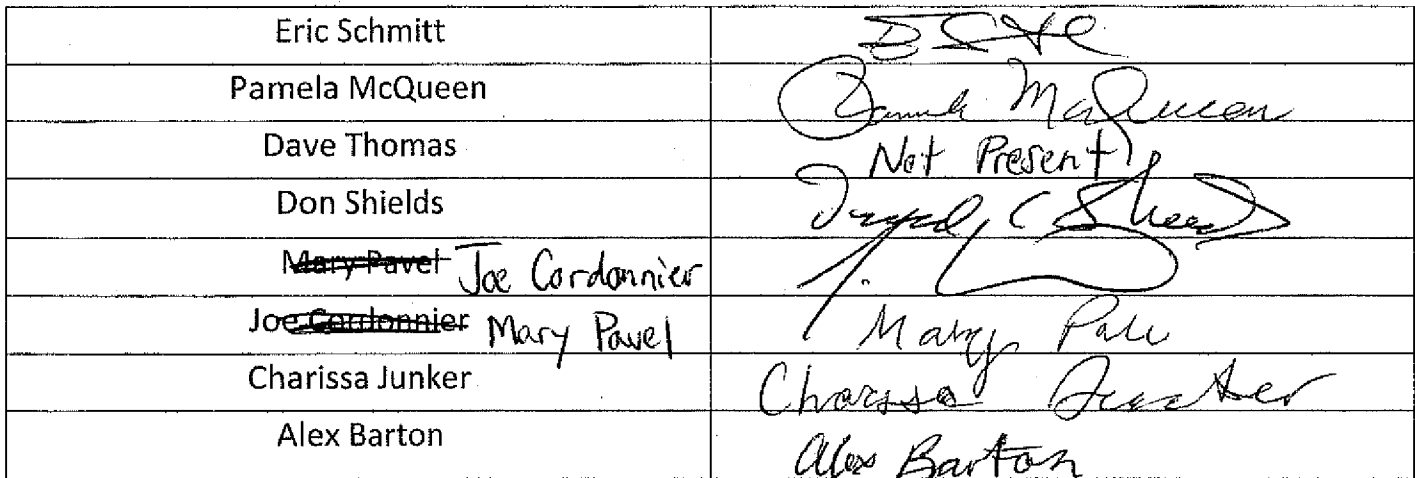 Eric Schmitt
Pamela McQueen Pamela McQueen
Dave Thomas Not Present
Don Shields
Mary Pavel Joe Cordonnier
Joe Cordonnier Mary Pavel Mary
Charissa Junker Charissa Junker
Alex Barton Alex Barton